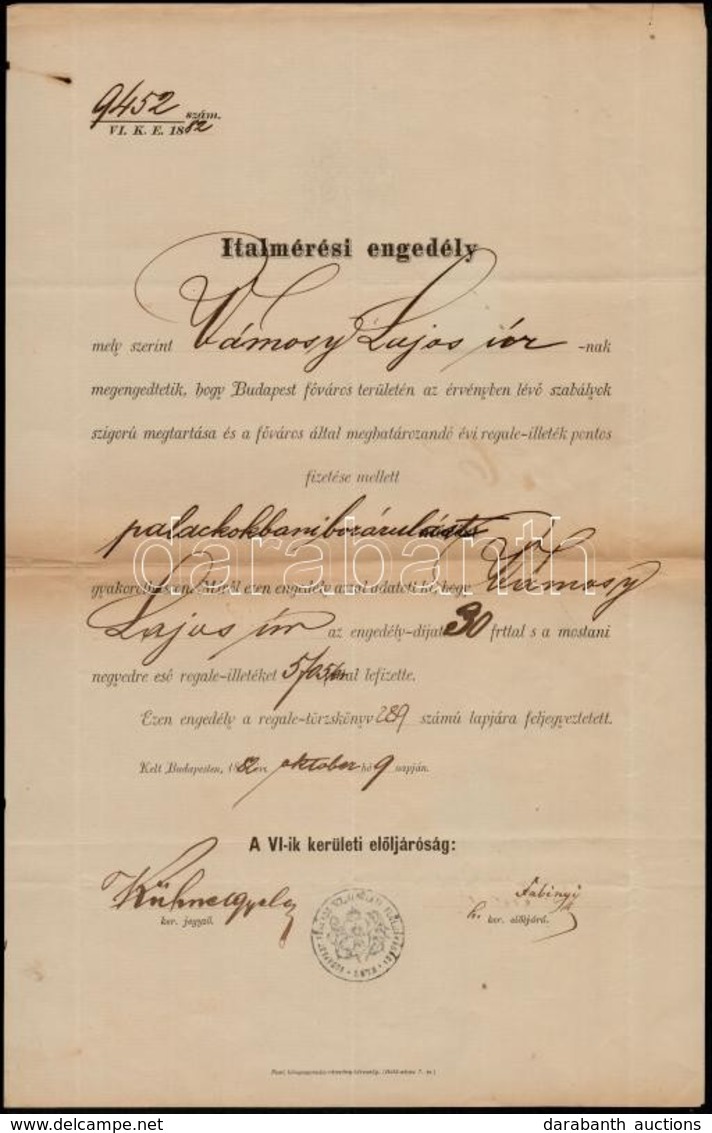 9452 szám.
VI. K. E. 1882
Italmérési engedély
mely szerint Vámosy Lajos úr -nak
megengedtetik, hogy Budapest főváros területén az érvényben lévő szabályok
szigorú megtartása és a főváros által meghatározandó évi regale-illeték pontos
fizetése mellett
palackokbani borárulást
darabanth
gyakorolhasson. Miről ezen engedély azzal adatott ki, hogy Vámosy
Lajos úr az engedély-díjat 30 frttal s a mostani
negyedre eső regale-illetéket lefizette.
Ezen engedély a regale-törzskönyv 289 számú lapjára feljegyeztetett.
Kelt Budapesten, 1882 évi oktober hó 9 napján.
A VI-ik kerületi előljáróság:
Kühne Gyula
Fabinyi
ker. jegyző.
h. ker. előljáró.
darabanth auctions